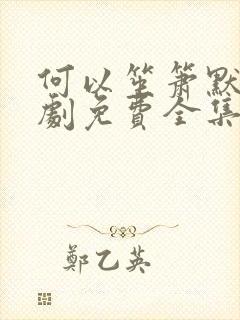 何以笙箫默
劇免費全集
鄭乙英